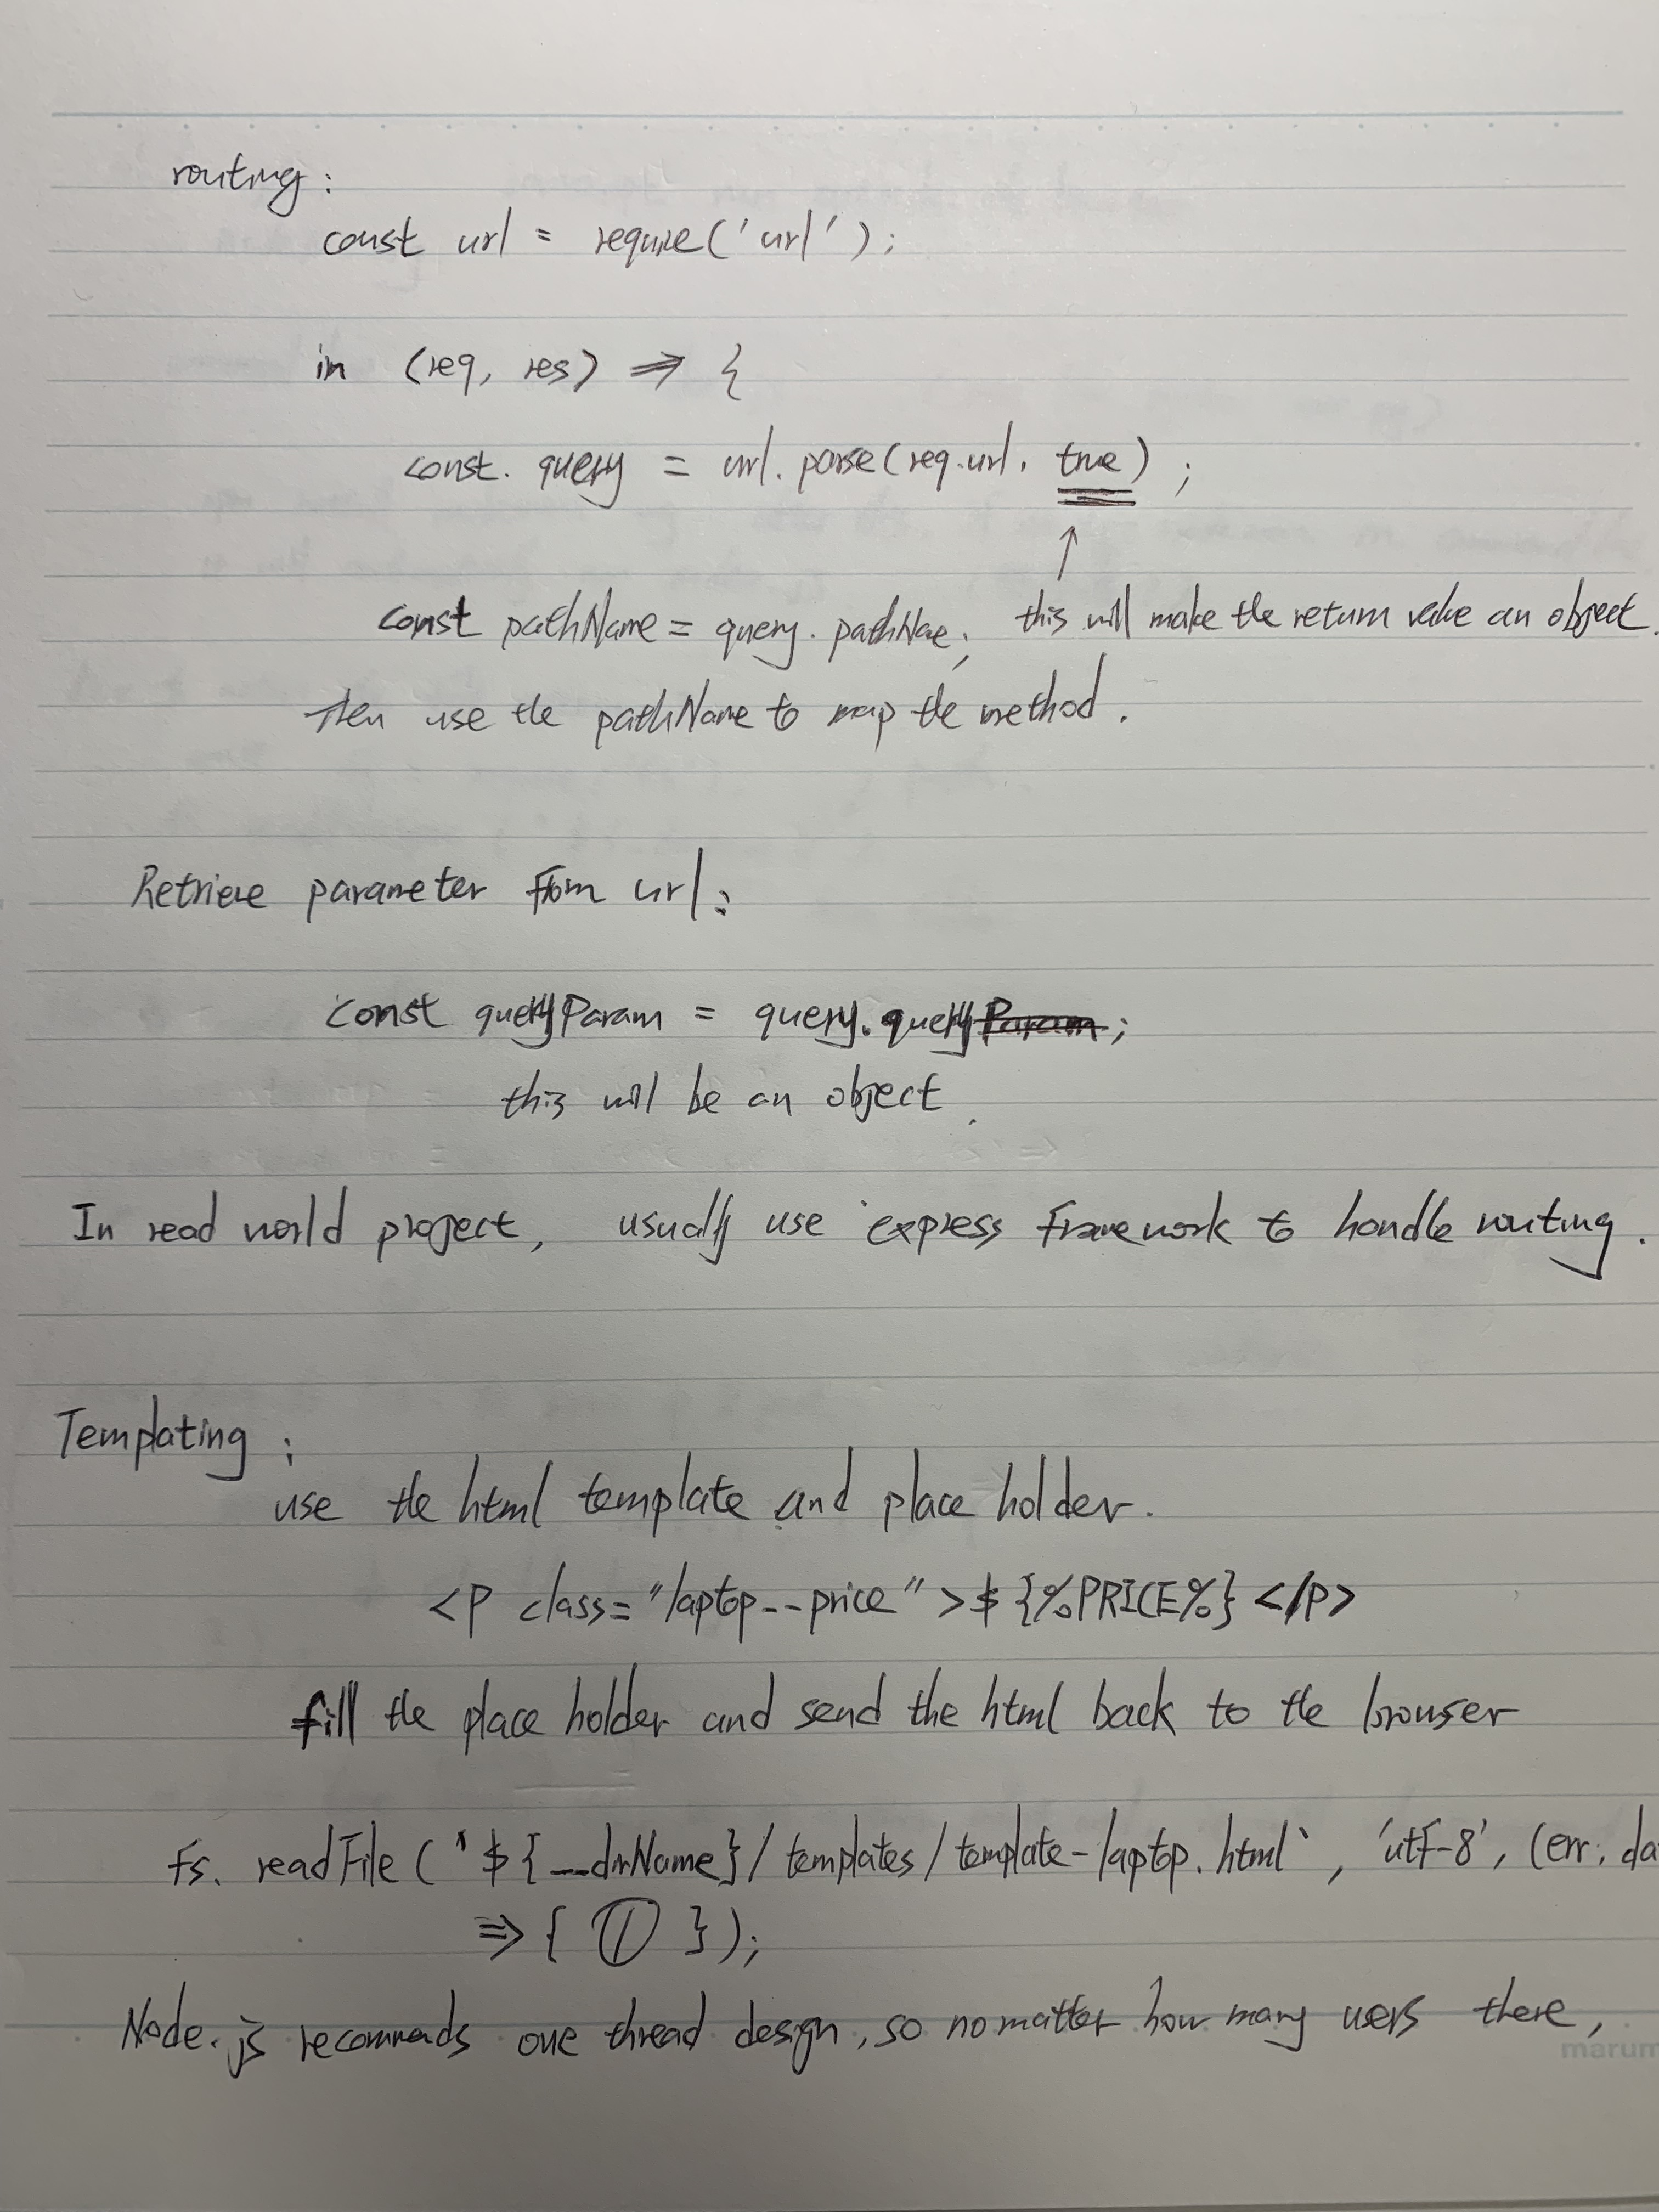 routing:
const url = require('url');
in (req, res) => {
const. query = url.parse(req.url, true);
↑
const pathName = query.pathNae; this will make the return value an object.
then use the pathName to map the method.
Retrieve parameter from url:
const queryParam = query.query~~Param~~;
this will be an object.
In read world project, usually use express framework to handle routing.
Templating:
use the html template and place holder.
<p class="laptop--price">${%PRICE%}</p>
fill the place holder and send the html back to the browser
fs.readFile(`${__dirName}/templates/template-laptop.html`, 'utf-8', (err, da
=> { ① });
Node.js recommends one thread design, so no matter how many users there,
marum